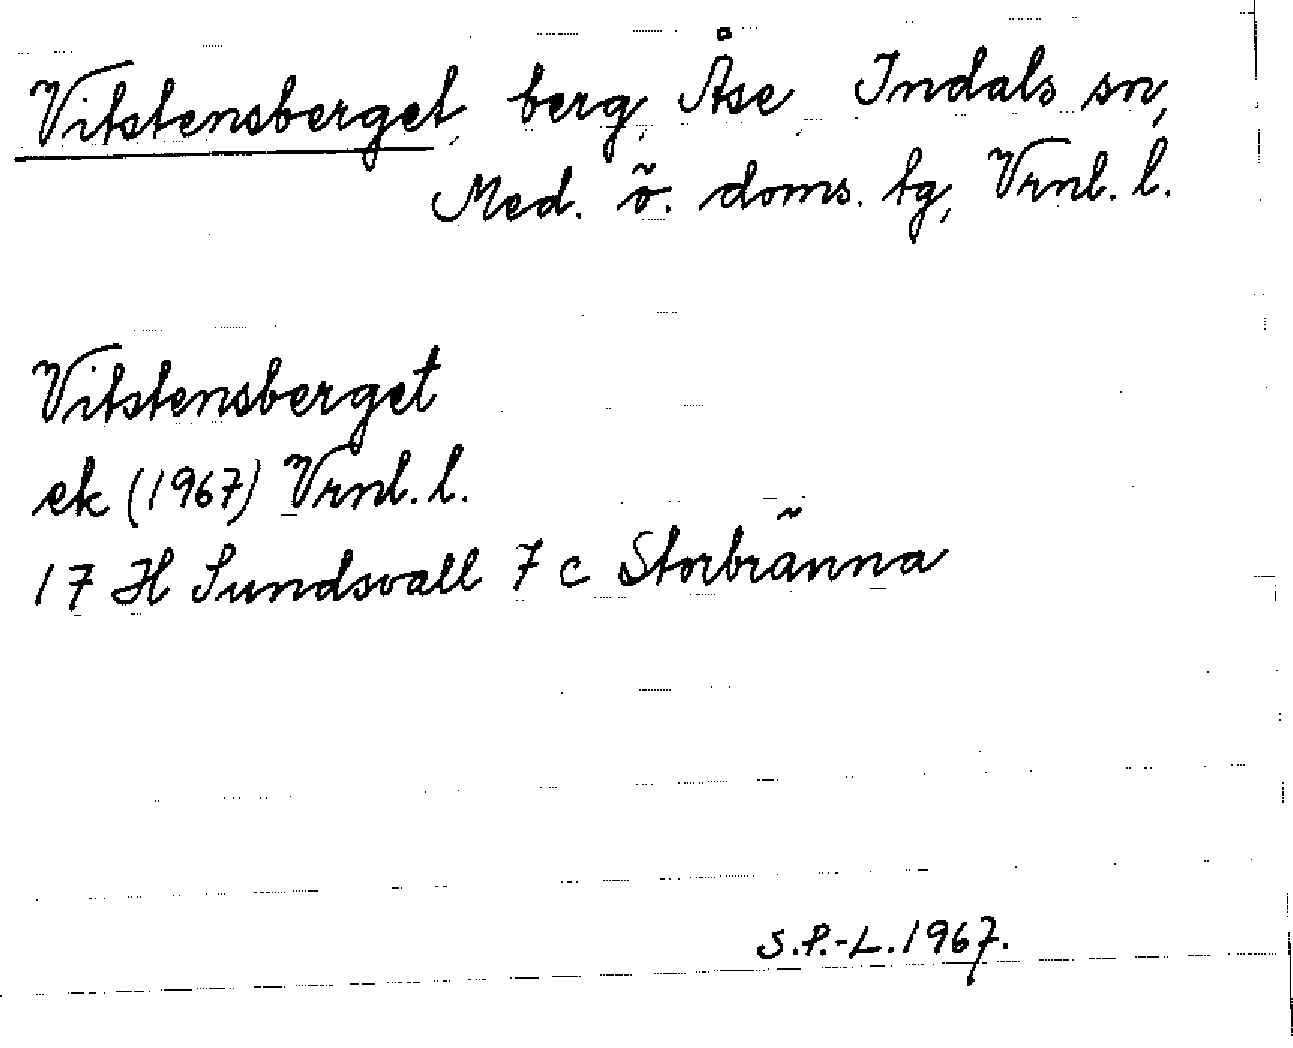 Vitstensberget, berg, Åse, Indals sn,
Med. ö. doms. tg, Vrnl. l.
Vitstensberget
ek (1967) Vrnl. l.
17 H Sundsvall 7 c Storbränna
S.P.-L. 1967.